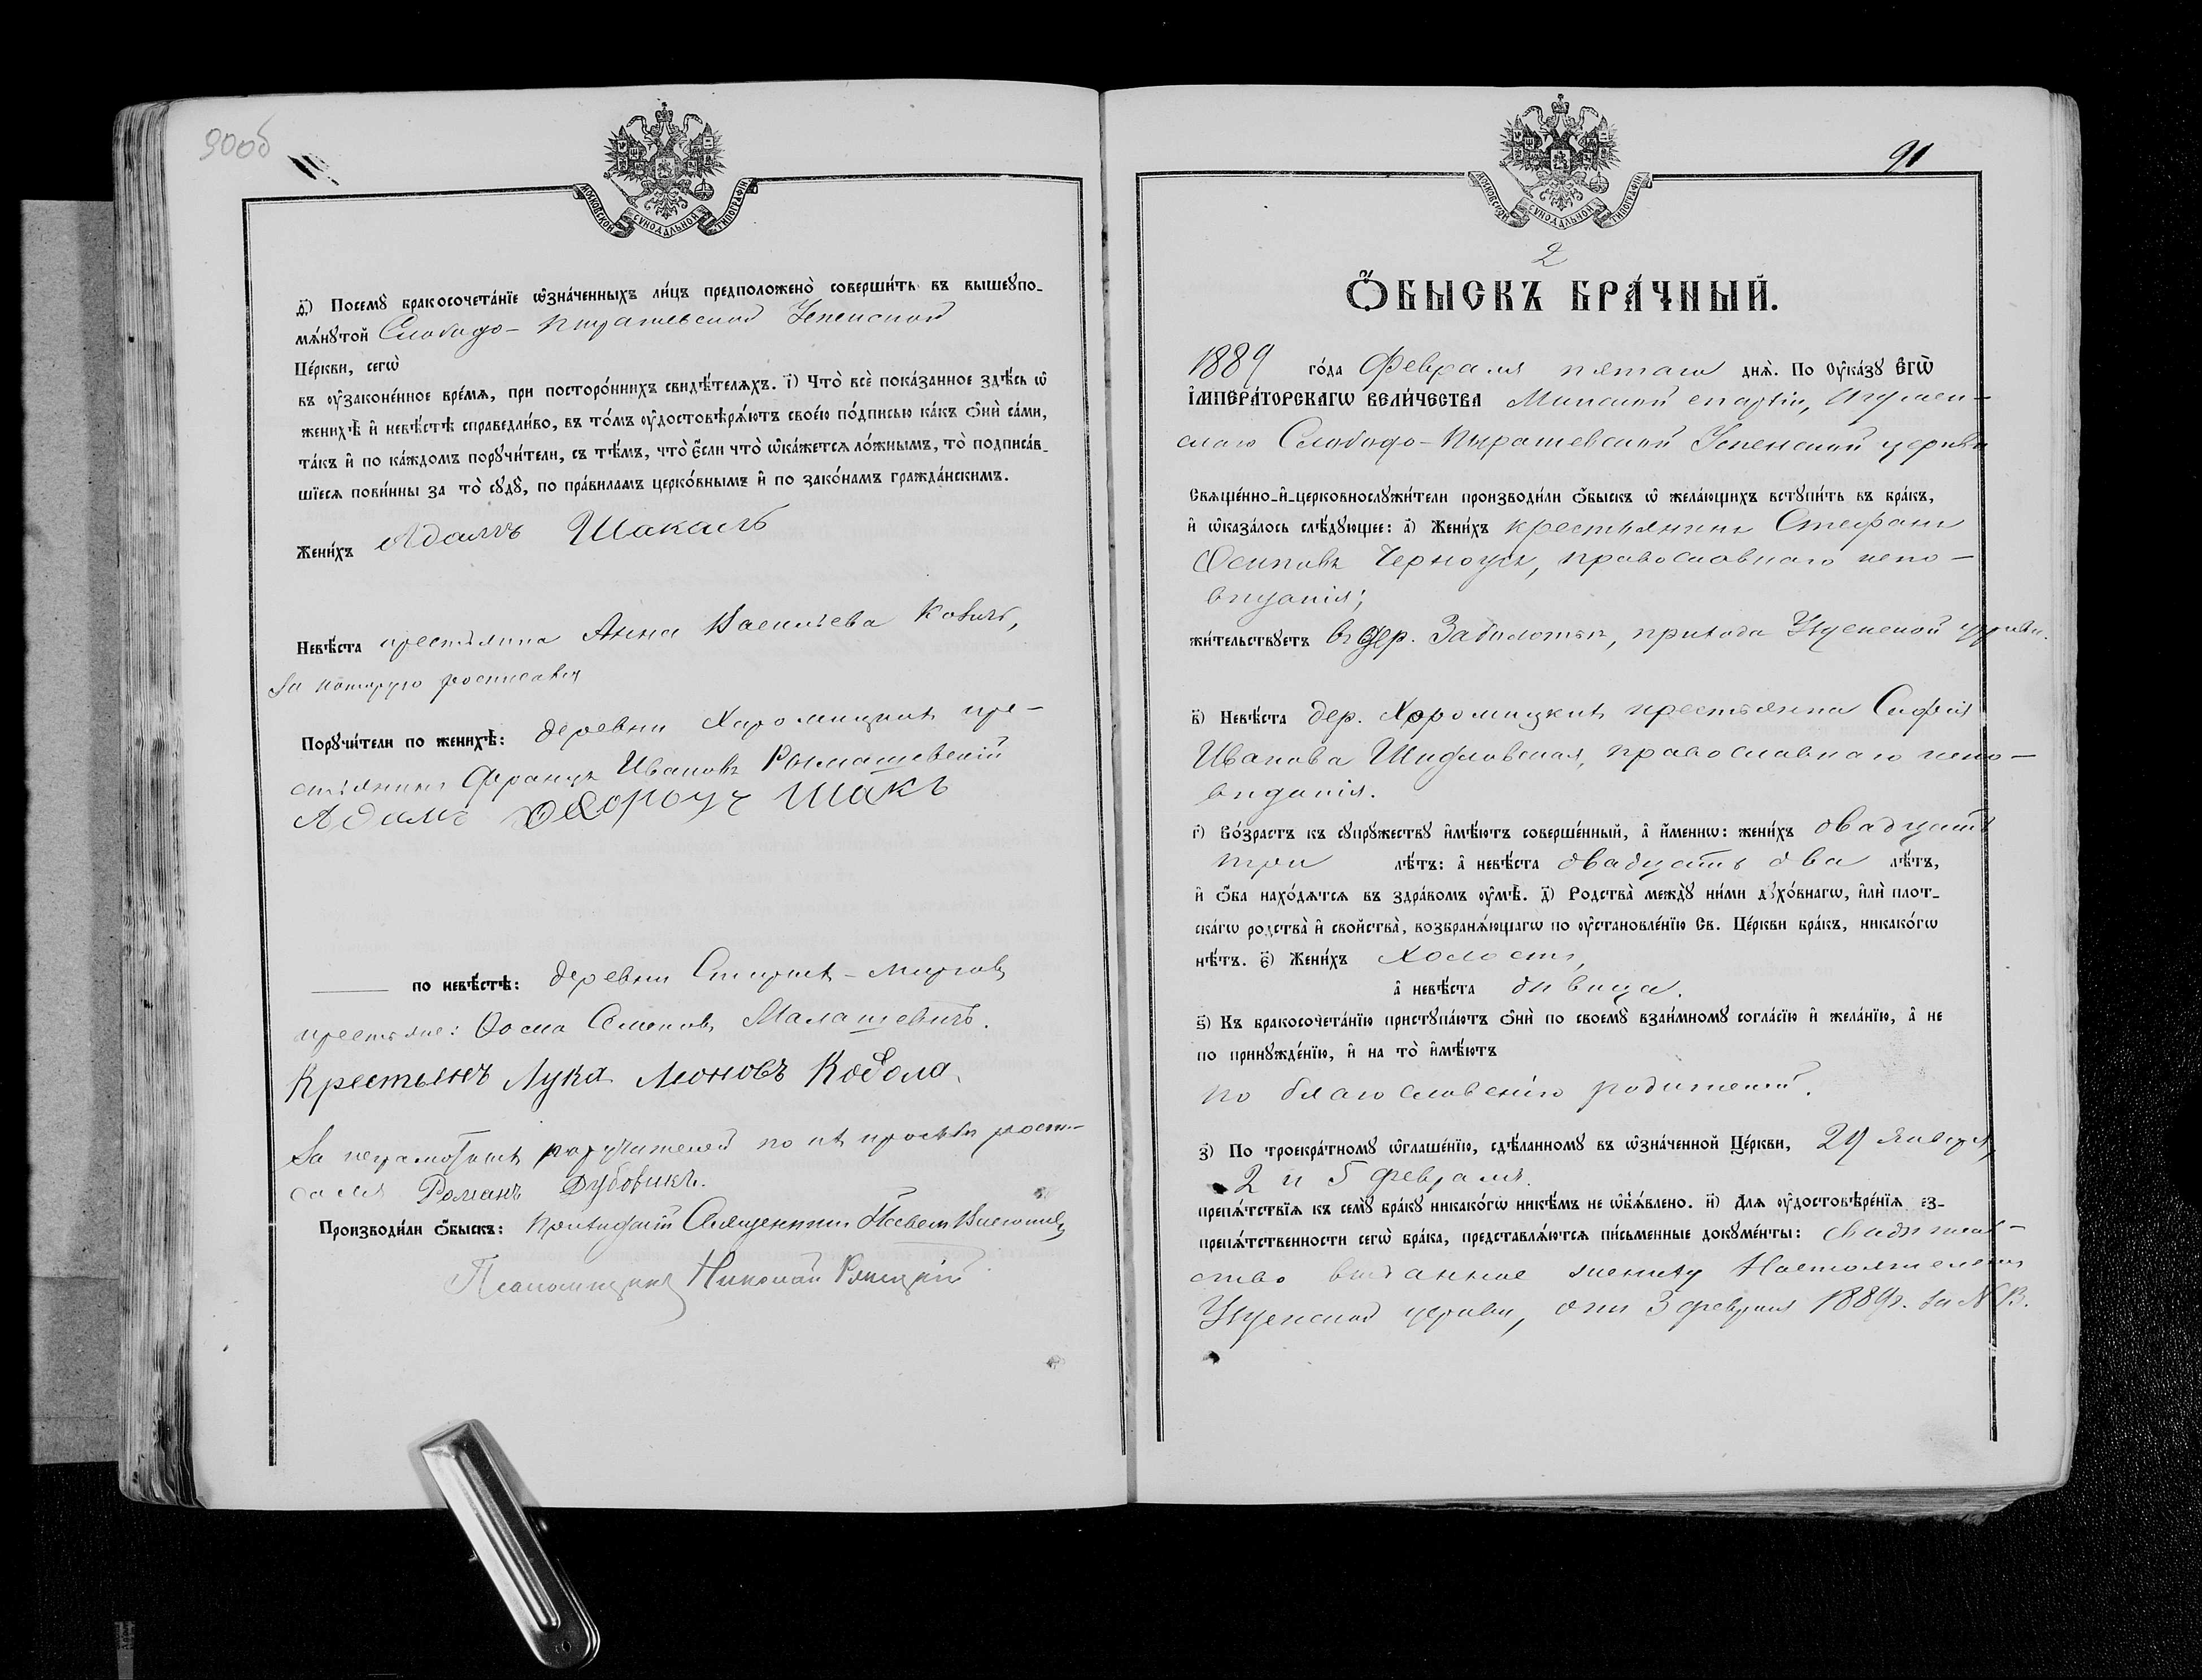 90об
МОСКОВСКОЙ СѴНОДАЛЬНОЙ ТИПОГРАФІИ
д҃) Посемꙋ̀ бракосочета́нїе ѡ҆зна́ченныхъ ли́цъ предположено̀ соверши́ть въ вышеꙋпо-
мѧ́нꙋтой Слободо-Пырашевской Успенской
Це́ркви, сегѡ̀
въ ᲂу҆законе́нное вре́мѧ, при посторо́ннихъ свидѣ́телѧхъ. і҃) Что̀ всѐ пока́занное здѣ́сь ѡ҆
женихѣ̀ и҆ невѣ́стѣ справедли́во, въ то́мъ ᲂу҆достовѣрѧ́ютъ свое́ю по́дписью ка́къ ѻ҆нѝ са́ми,
та́къ и҆ по ка́ждомъ порꙋчи́тели, съ тѣ́мъ, что̀ є҆́сли что̀ ѡ҆ка́жетсѧ ло́жнымъ, то̀ подписа́в-
шїесѧ пови́нны за то̀ сꙋдꙋ̀, по пра́виламъ церко́внымъ и҆ по зако́намъ гражда́нскимъ.
Жени́хъ Адамъ Шакаль
Невѣ́ста крестьянка Анна Васильева Ковичъ,
За которую росписался
Порꙋчи́тели по женихѣ̀: деревни Хоромицкихъ кре-
стьянинъ Францъ Ивановъ Ромашевскій
Адамъ Шакъ
по невѣ́стѣ: деревни
крестьяне: Ѳома Семеновъ Малашевичъ.
Крестьянъ Лука Леоновъ Кобола.
За неграмотныхъ поручителей по ихъ просьбѣ роспи-
сался Романъ Дубовикъ.
Производи́ли ѻ҆́быскъ: Священникъ
Псаломщикъ Николай
91
МОСКОВСКОЙ СѴНОДАЛЬНОЙ ТИПОГРАФІИ
2
Ѻ҆́БЫСКЪ БРА́ЧНЫЙ.
1889 го́да Февраля пятаго днѧ̀. По Оу҆ка́зꙋ Є҆гѡ̀
І҆МПЕРА́ТОРСКАГѠ ВЕЛИ́ЧЕСТВА Минской епархіи, Игумен-
скаго Слободо-Пырашевской Успенской церкви
Свѧще́нно-и҆-церковнослꙋжи́тели производи́ли ѻ҆́быскъ ѡ҆ жела́ющихъ встꙋпи́ть въ бра́къ,
и҆ ѡ҆каза́лось слѣ́дꙋющее: а҃) Жени́хъ крестьянинъ Стефанъ
Осиповъ Черноусъ, православнаго испо-
вѣданія;
жи́тельствꙋетъ въ дер. Заболотьи, прихода Узденской церкви.
в҃) Невѣ́ста дер. Хоромицкихъ крестьянка Софія
Иванова Шидловская, православнаго испо-
вѣданія.
г҃) Во́зрастъ къ сꙋпрꙋ́жествꙋ и҆мѣ́ютъ соверше́нный, а҆ и҆́меннѡ: жени́хъ двадцать
три лѣ́тъ: а҆ невѣ́ста двадцать два лѣ́тъ,
и҆ ѻ҆́ба нахо́дѧтсѧ въ здра́вомъ ᲂу҆мѣ̀. д҃) Родства̀ междꙋ̀ ни́ми дꙋхо́внагѡ, и҆лѝ плот-
ска́гѡ родства̀ и҆ свойства̀, возбранѧ́ющагѡ по ᲂу҆становле́нїю Св. Це́ркви бра́къ, никако́гѡ
нѣ́тъ. є҃) Жени́хъ холостъ,
а҆ невѣ́ста дѣвица.
ѕ҃) Къ бракосочета́нїю пристꙋпа́ютъ ѻ҆нѝ по своемꙋ̀ взаи́мномꙋ согла́сїю и҆ жела́нїю, а҆ не
по принꙋжде́нїю, и҆ на то̀ и҆мѣ́ютъ
по благословенію родителей.
з҃) По троекра́тномꙋ ѡ҆глаше́нїю, сдѣ́ланномꙋ въ ѡ҆зна́ченной Це́ркви, 29 Января,
2 и 5 февраля.
препѧ́тствїѧ къ семꙋ̀ бра́кꙋ никако́гѡ никѣ́мъ не ѡ҆б̾ѧ́влено. и҃) Длѧ ᲂу҆достовѣре́нїѧ без-
препѧ́тственности сегѡ̀ бра́ка, представлѧ́ютсѧ пи́сьменные докꙋме́нты: свидѣтель-
ство выданное жениху Настоятелемъ
Узденской церкви, отъ 3 февраля 1889г. за №13.